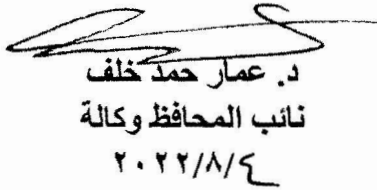 د. عمار حمد خلف
نائب المحافظ وكالة
٢٠٢٢/٨/٤